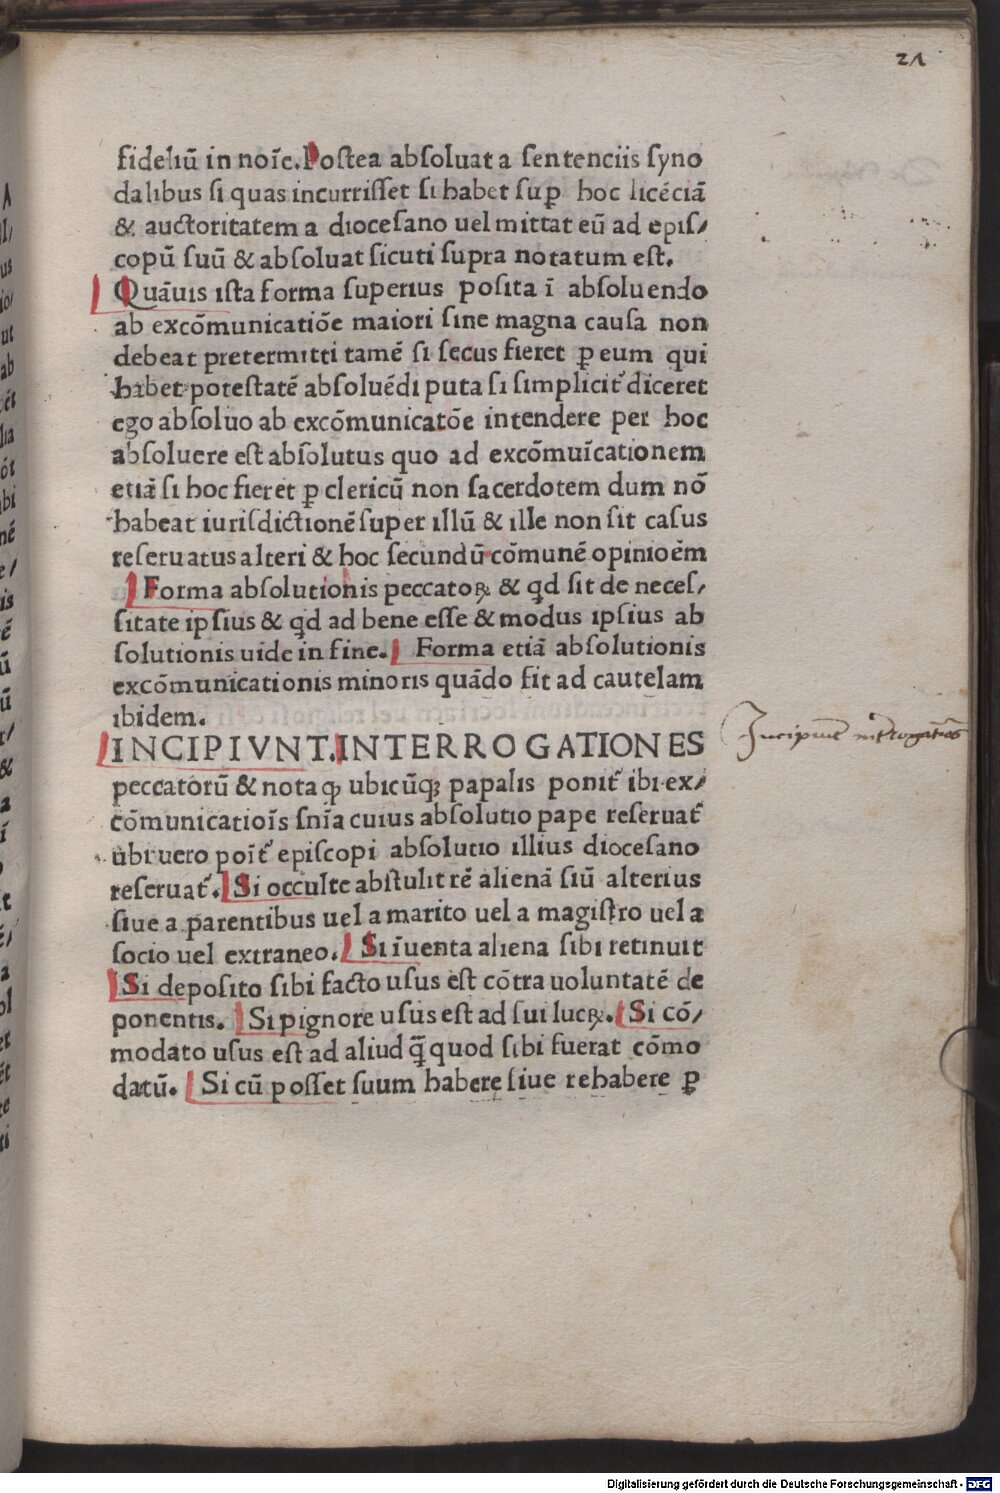 21
fideliū in noīe. Postea absoluat a sentenciis syno
dalibus si quas incurrisset si habet suꝑ hoc licēciā
& auctoritatem a diocesano uel mittat eū ad epis/
copū suū & absoluat sicuti supra notatum est.
Quāuis ista forma superius posita ī absoluendo
ab excōmunicatiōe maiori sine magna causa non
debeat pretermitti tamē si secus fieret ꝑ eum qui
habet potestatē absoluēdi puta si simplicit᷑ diceret
ego absoluo ab excōmunicatōe intendere per hoc
absoluere est absolutus quo ad excōmuīcationem
etiā si hoc fieret ꝑ clericū non sacerdotem dum nō
habeat iurisdictionē super illū & ille non sit casus
reseruatus alteri & hoc secundū cōmunē opinioēm
Forma absolutionis peccatoꝝ & qd sit de neces/
sitate ipsius & qd ad bene esse & modus ipsius ab
solutionis uide in fine. Forma etiā absolutionis
excōmunicationis minoris quādo fit ad cautelam
ibidem.
INCIPIVNT. INTERROGATIONES
Incipiunt interrogationes
peccatorū & nota ꝙ ubicūqꝫ papalis ponit᷑ ibi ex/
cōmunicatioīs snīa cuius absolutio pape reseruat᷑
ubi uero poīt᷑ episcopi absolutio illius diocesano
reseruat᷑. Si occulte abstulit rē alienā siū alterius
siue a parentibus uel a marito uel a magistro uel a
socio uel extraneo. Si īuenta aliena sibi retinuit
Si deposito sibi facto usus est cōtra uoluntatē de
ponentis. Si pignore usus est ad sui lucꝝ. Si cō/
modato usus est ad aliud q̄ quod sibi fuerat cōmo
datū. Si cū posset suum habere siue rehabere ꝑ
Digitalisierung gefördert durch die Deutsche Forschungsgemeinschaft - DFG